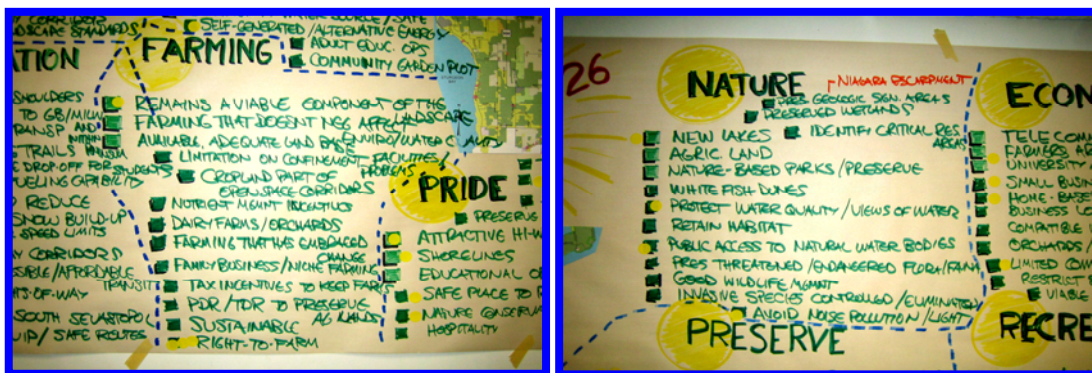 Y CORRIDORS
DSCAPE STANDARDS
SELF-GENERATED/ALTERNATIVE ENERGY
ADULT EDUC. OPS
COMMUNITY GARDEN PLOT
TION
SHOULDERS
TO GB/MILW
TRANSP AND
WITHIN
TRAILS
E DROP-OFF FOR
STUDENTS
UELING CAPABILITY
REDUCE
SNOW BUILD-UP
SPEED LIMITS
Y CORRIDORS
SSIBLE/AFFORDABLE
TRANSIT
TS-OF-WAY
SOUTH SEVASTOPOL
UIP/SAFE ROUTES
FARMING
REMAINS A VIABLE COMPONENT OF THE
LANDSCAPE
FARMING THAT DOESENT NEG AFFECT
ENVIRO/WATER QUALITY
AVAILABLE, ADEQUATE LAND BASE
LIMITATION ON CONFINEMENT FACILITIES/
PROBLEMS
CROPLAND PART OF
OPEN SPACE CORRIDORS
NUTRIENT MGMT INCENTIVES
DAIRY FARMS/ORCHARDS
FARMING THAT HAS EMBRACED
CHANGE
FAMILY BUSINESS/NICHE FARMING
TAX INCENTIVES TO KEEP FARMS
PDR/TDR TO PRESERVE
AG LANDS
SUSTAINABLE
RIGHT-TO-FARM
PRIDE
PRESERVE
ATTRACTIVE HI-W
SHORELINES
EDUCATIONAL O
SAFE PLACE TO
NATURE CONSERVA
HOSPITALITY
26
NATURE
NIAGARA ESCARPMENT
PRES GEOLOGIC SIGN. AREAS
PRESERVED WETLANDS
NEW LAKES
IDENTIFY CRITICAL RES
AREAS
AGRIC. LAND
NATURE-BASED PARKS/PRESERVE
WHITE FISH DUNES
PROTECT WATER QUALITY/VIEWS OF WATER
RETAIN HABITAT
PUBLIC ACCESS TO NATURAL WATER BODIES
PRES THREATENED/ENDANGERED FLORA/FAUNA
GOOD WILDLIFE MGMT
INVASIVE SPECIES CONTROLLED/ELIMINATED
AVOID NOISE POLLUTION/LIGHT
PRESERVE
ECON
TELECOM
FARMERS
UNIVERSIT
SMALL BUSI
HOME-BASE
BUSINESS
COMPATIBLE
ORCHARDS
LIMITED COM
RESTRICT
VIABLE
RECRE